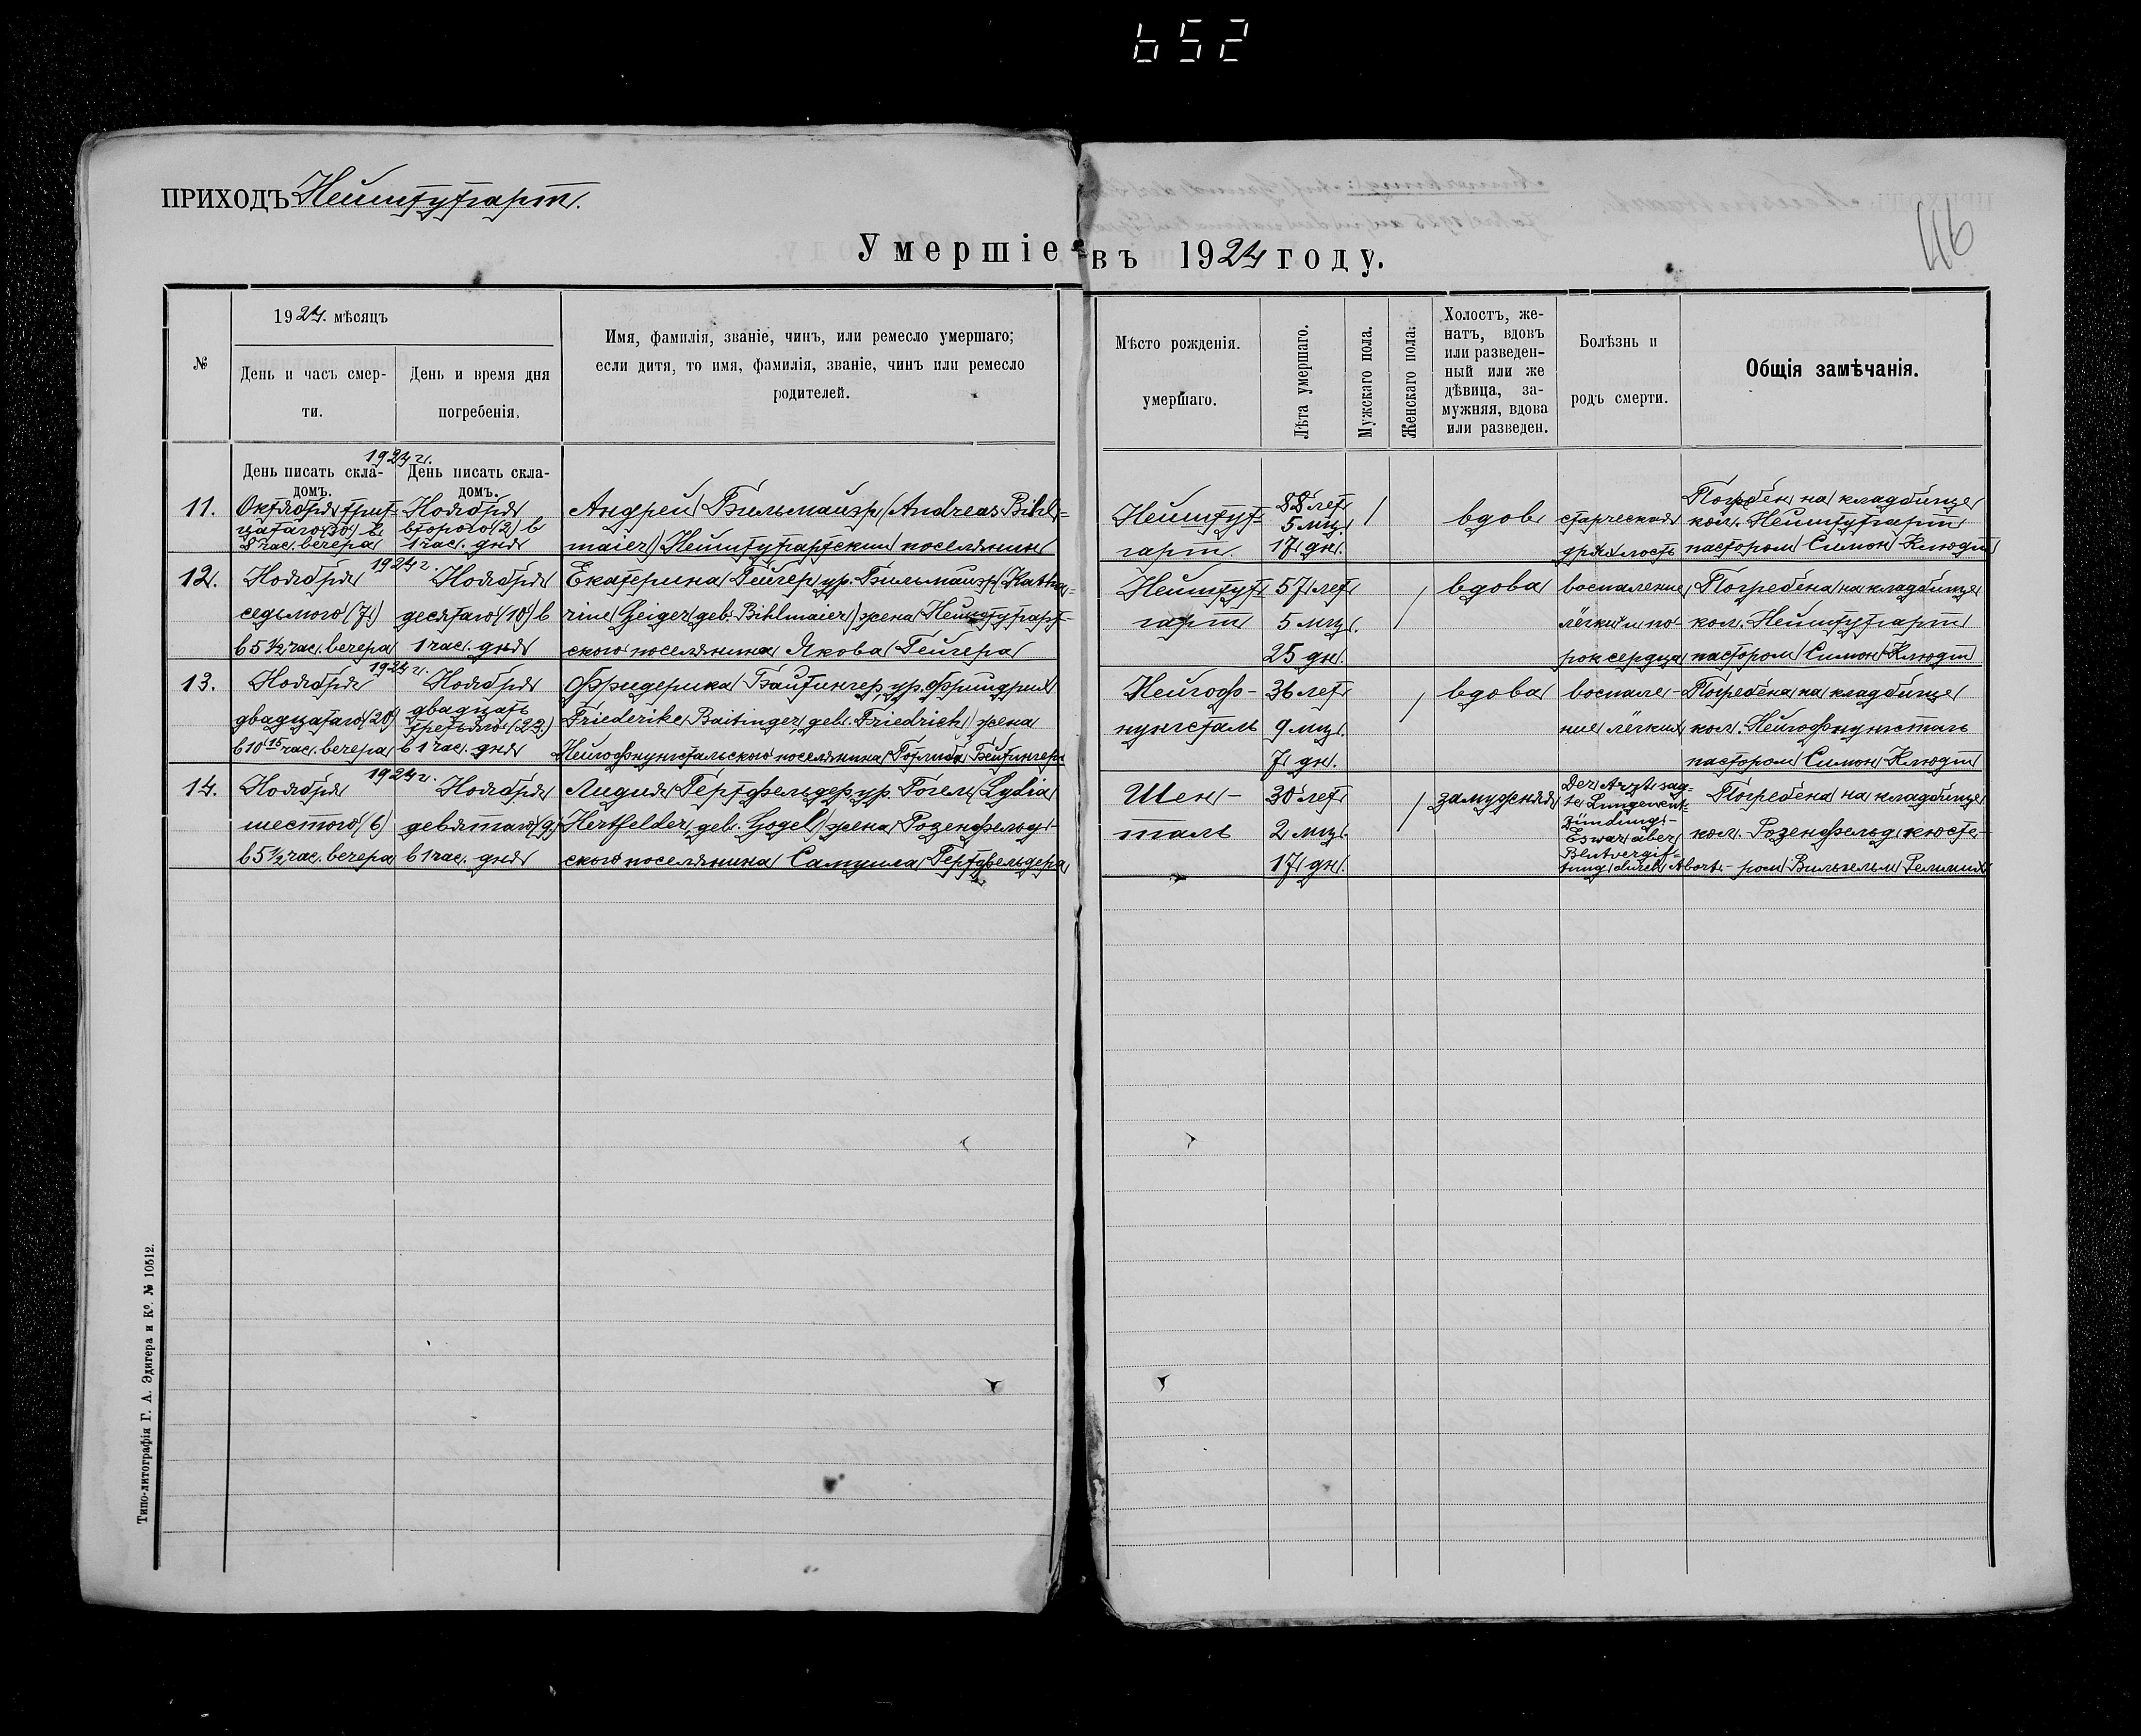 652
ПРИХОДЪ Нейштутгарт.
46
Умершіе въ 1924 году.
№
1924. мѣсяцъ
День и часъ смер-
ти.
День и время дня
погребенія.
Имя, фамилія, званіе, чинъ, или ремесло умершаго;
если дитя, то имя, фамилія, званіе, чинъ или ремесло
родителей.
Мѣсто рожденія.
умершаго.
Лѣта умершаго.
Мужскаго пола.
Женскаго пола.
Холостъ, же-
натъ, вдовъ
или разведен-
ный или же
дѣвица, за-
мужняя, вдова
или разведен.
Болѣзнь и
родъ смерти.
Общія замѣчанія.
1924 г.
День писать скла-
домъ.
День писать скла-
домъ.
11.
Октября трит-
цатаго (30) в
8 час. вечера
Ноября
второго (2) в
1 час. дня
Андрей Бильмайэр (Andreas Bihl-
maier) Нейштутгартский поселянин
Нейштут-
гарт
88 лет
5 мц.
17 дн.
/
вдов
старческая
дряхлость
Погребен на кладбище
кол. Нейштутгарт
пастором Симон Клюдт
12.
1924 г.
Ноября
седьмого (7)
в 5 1/2 час. вечера
Ноября
десятаго (10) в
1 час. дня
Екатерина Гейгер, ур. Бильмайэр (Katha-
rine Geiger, geb. Bihlmaier) жена Нейштутгарт-
ского поселянина Якова Гейгера
Нейштут-
гарт
57 лет
5 мц.
25 дн.
/
вдова
воспаление
лёгких и по-
рок сердца
Погребена на кладбище
кол. Нейштутгарт
пастором Симон Клюдт
13.
1924 г.
Ноября
двадцатаго (20)
в 10 15 час. вечера
Ноября
двадцать
третьяго (23.)
в 1 час. дня
Фридерика Байтингер, ур. Фридрих
Friederike Baitinger, geb. Friedrich) жена
Нейгофнунгстальского поселянина Готлиба Бейтингера
Нейгоф-
нунгсталь
36 лет
9 мц.
7 дн.
/
вдова
воспале-
ние лёгких
Погребена на кладбище
кол. Нейгофнунгсталь
пастором Симон Клюдт
14.
1924 г.
Ноября
шестого (6)
в 5 1/2 час. вечера
Ноября
девятаго (9)
в 1 час. дня
Лидия Гертфельдер, ур. Гогель (Lydia
Hertfelder, geb. Gogel) жена Розенфельд-
ского поселянина Самуила Гертфельдера
Шен-
таль
30 лет
2 мц.
17 дн.
/
замужняя
Der Arzt sag-
te Lungenent-
zündung.-
Es war aber
Blutvergif-
tung durch Abort.-
Погребена на кладбище
кол. Розенфельд, кюсте-
ром Вильгельм
Типо-литографія Г. А. Эдигера и Ко. № 10512.